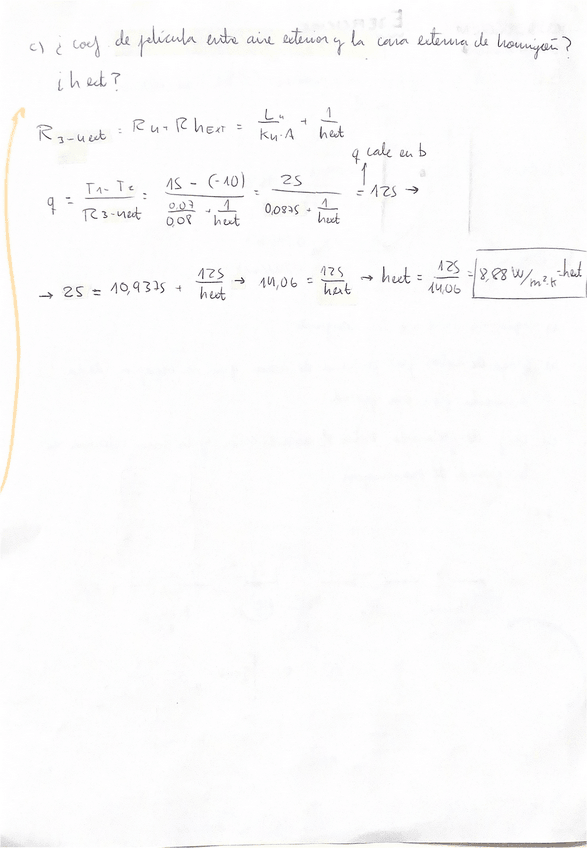 c) ¿ coef de película entre aire exterior y la cara externa de hormigón?
¿h ext?
R 3-4ext = R4 + R hEXT = L4/K4·A + 1/hext
q calc en b
q = T1 - Te / R3-4ext = 15 - (-10) / 0,07/0,08 + 1/hext = 25 / 0,0875 + 1/hext = 125 →
→ 25 = 10,9375 + 125/hext → 14,06 = 125/hext → hext = 125/14,06 = 8,88 W/m²·K = hext